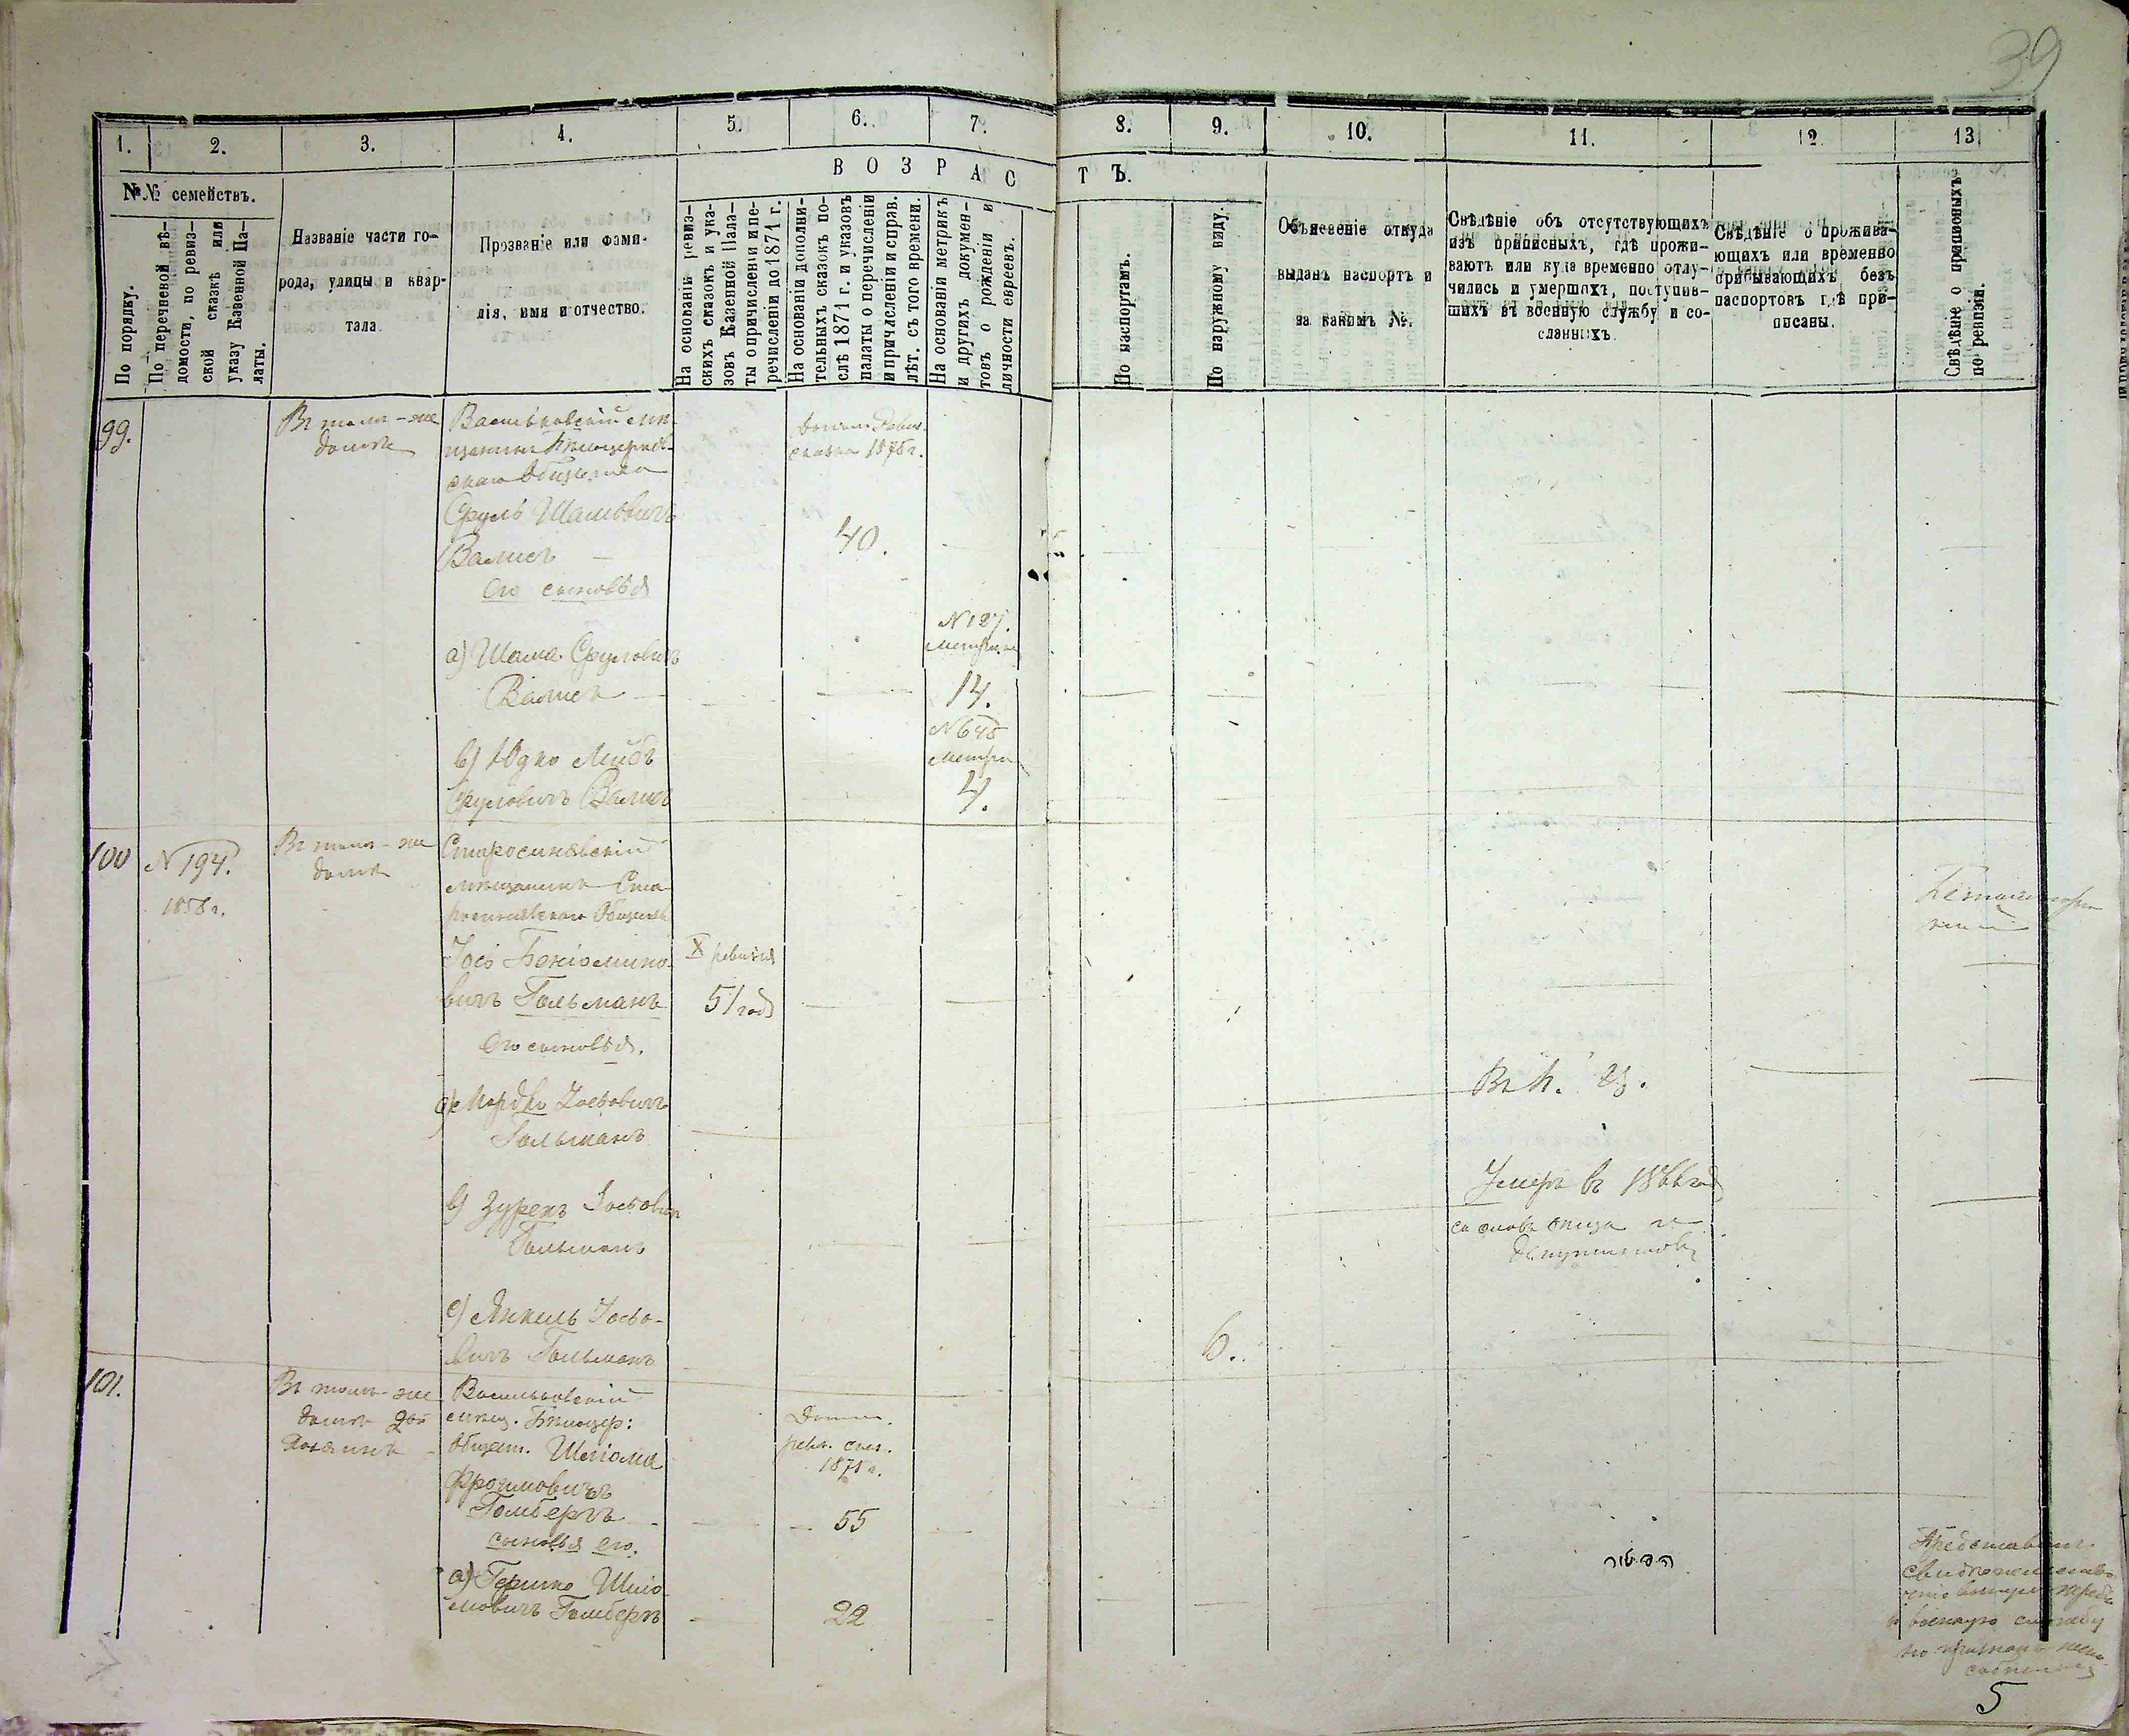 39
1. 2. 3. 4. 5. 6. 7. 8. 9. 10. 11. 12. 13.
ВОЗРАСТЪ.
№№ семействъ.
По порядку.
По перечневой вѣ-
домости, по ревиз-
ской сказкѣ или
указу Казенной Па-
латы.
Названіе части го-
рода, улицы и квар-
тала.
Прозваніе или фами-
лія, имя и отчество.
На основаніи ревиз-
скихъ сказокъ и ука-
зовъ Казенной Пала-
ты о причисленіи и пе-
речисленіи до 1871 г.
На основаніи дополни-
тельныхъ сказокъ по-
слѣ 1871 г. и указовъ
палаты о перечислени
и причислени и справ.
лѣт. съ того времени.
На основаніи метрикъ
и другихъ докумен-
товъ о рожденіи и
личности евреевъ.
По паспортамъ.
По наружному виду.
Объясненіе откуда
выданъ паспортъ и
за какимъ №.
Свѣдѣніе объ отсутствующихъ
изъ приписныхъ, гдѣ прожи-
ваютъ или куда временно отлу-
чились и умершихъ, поступив-
шихъ въ военную службу и со-
сланныхъ.
Свѣдѣніе о прожива-
ющихъ или временно
прибывающихъ безъ
паспортовъ гдѣ при-
писаны.
Свѣдѣніе о приписныхъ
по ревизіи.
99.
Въ томъ-же
домѣ
Васильковскій мѣ-
щанинъ Бѣлоцерков-
скаго Общества
Сруль Шамовичъ
Валисъ
Его сыновья
сказка 1875 г.
40.
а) Шама Сруловичъ
Валисъ
N 127.
Метрика
14.
в) Юдко Лейбъ
Сруловичъ Валисъ
N 645
Метрика
4.
100
N 194.
1858 г.
Въ томъ-же
домѣ
Старосинявскій
мѣщанинъ Ста-
росинявскаго Общества
Іосѣ Беніомино-
вичъ Гольманъ
Его сыновья.
X ревизія
51 годъ
а) Мордко Іосьовичъ
Гольманъ
в) Зурехъ Іосьовичъ
Гольманъ
Умеръ въ 1866 году
со словъ отца и
с) Янкель Іосьо-
вичъ Гольманъ
6.
101.
Въ томъ-же
домѣ 2ой
Хозяинъ
Васильковскій
мѣщ. Бѣлоцер:
Общест. Шліома
Фроимовичъ
Гомбергъ
сыновья его.
Допол.
рев. сказ.
1875 г.
55
а) Гершко Шліо-
мовичъ Гомбергъ
22
Представилъ
военную службу
5